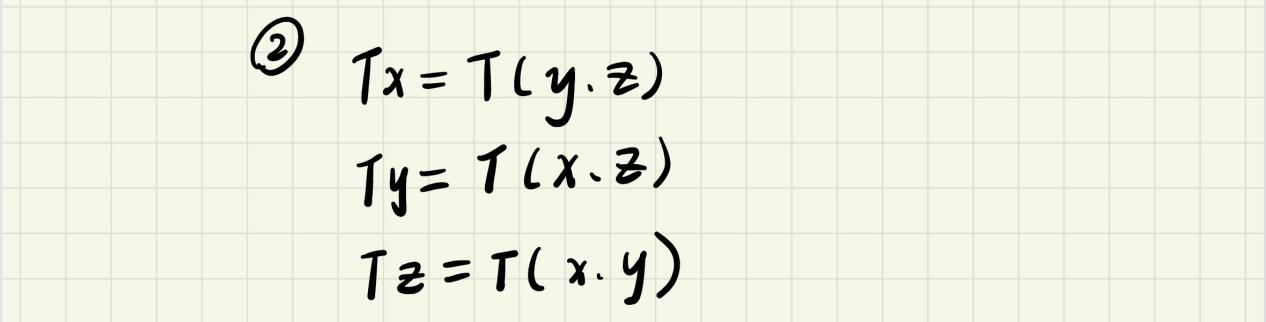 ② Tx = T(y.z)
Ty = T(x.z)
Tz = T(x.y)